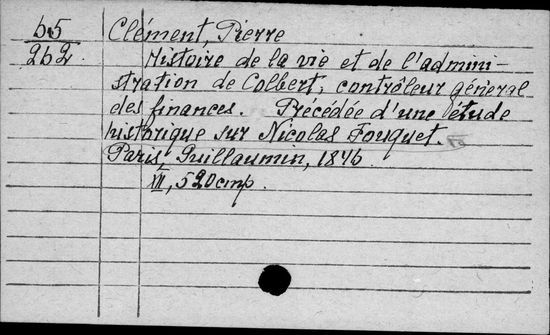 65 Clément, Pierre
262 Histoire de la vie et de l'admini-
stration de Colbert, contrôleur général
des finances. Précédée d'une étude
historique sur Nicolas Fouquet.
Paris, Guillaumin, 1846.
XII, 520 cmp.